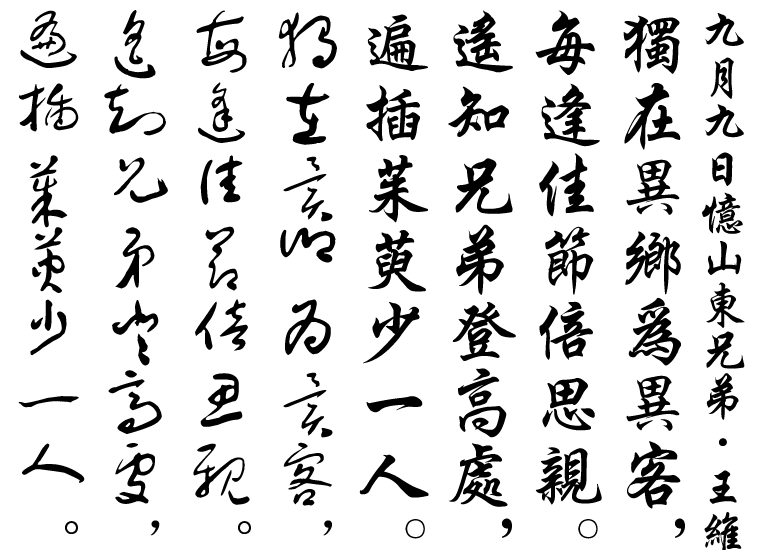 九月九日憶山東兄弟·王維
獨在異鄉為異客，
每逢佳節倍思親。
遙知兄弟登高處，
遍插茱萸少一人。
獨在異鄉為異客，
每逢佳節倍思親。
遙知兄弟登高處，
遍插茱萸少一人。